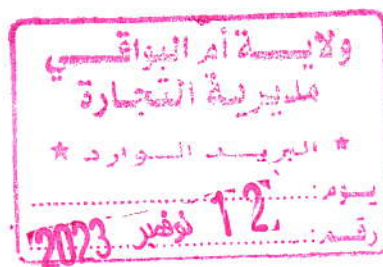 ولايـــة أم البواقـــي
مديريـة التجـارة
* البريـــد الـــوارد *
يــوم:..............................
12 نوفمبر 2023
رقــم:..............................